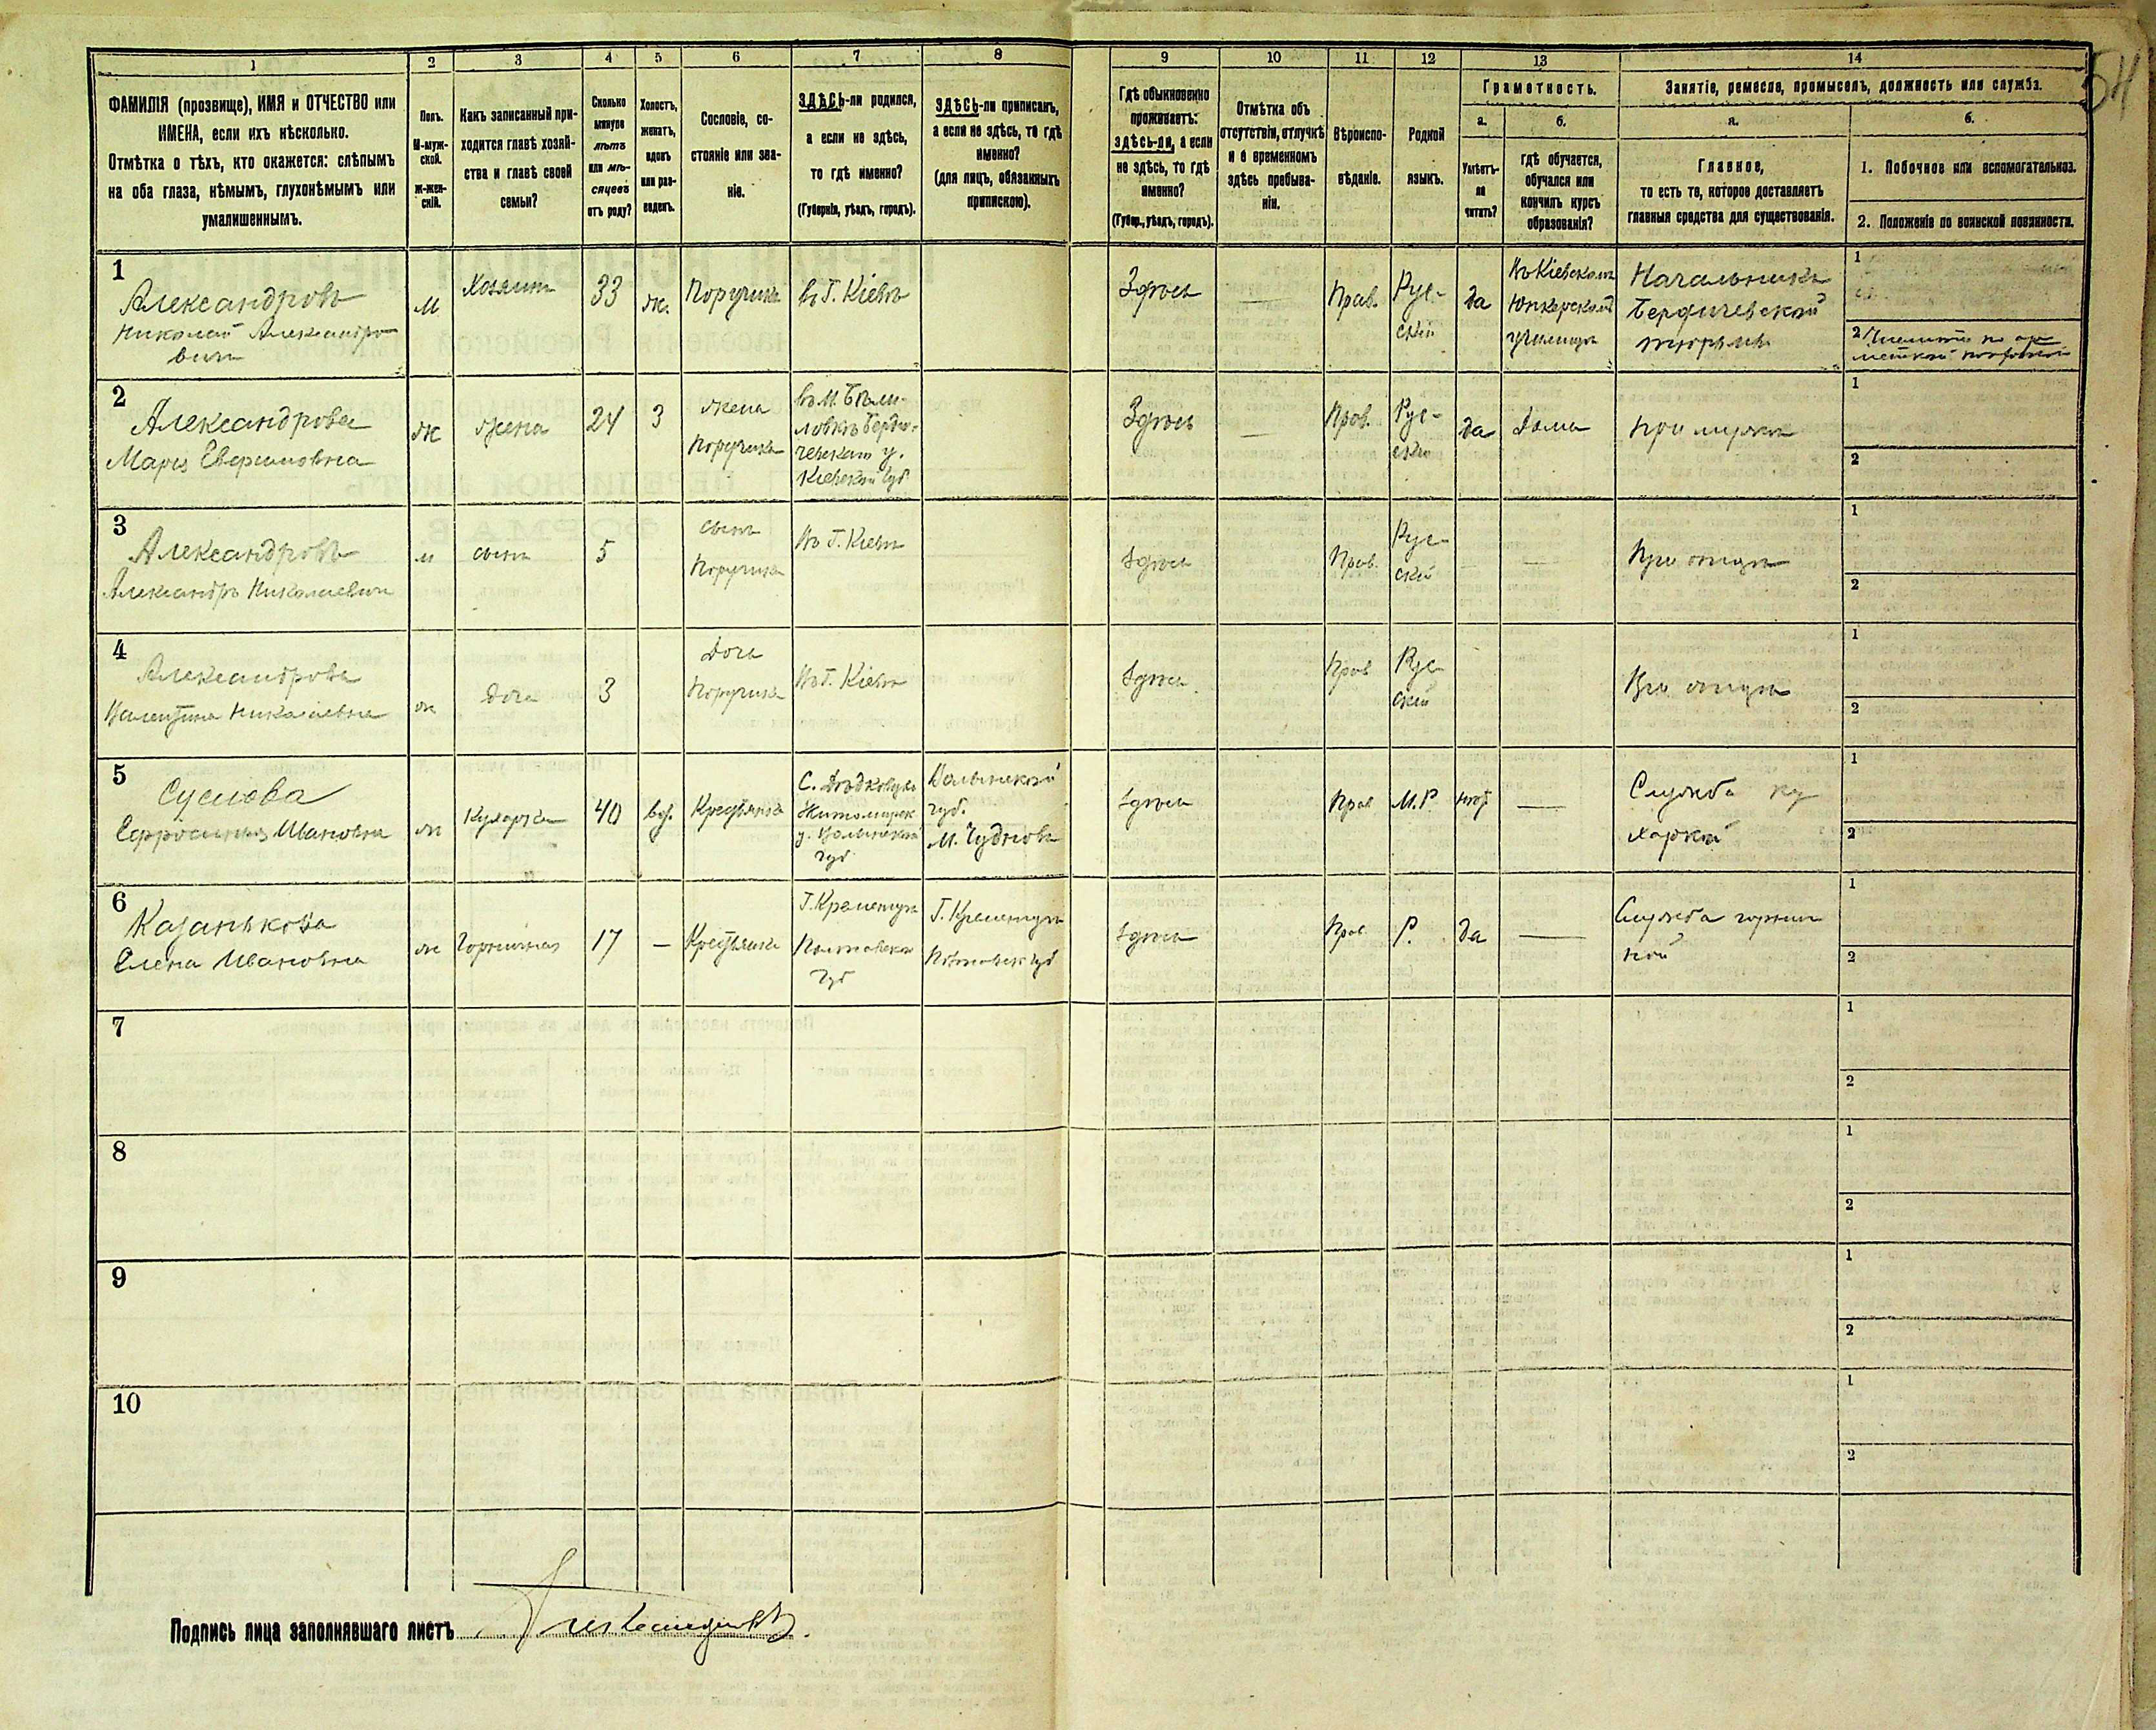 54
1 2 3 4 5 6 7 8 9 10 11 12 13 14
ФАМИЛІЯ (прозвище), ИМЯ и ОТЧЕСТВО или
ИМЕНА, если ихъ нѣсколько.
Отмѣтка о тѣхъ, кто окажется: слѣпымъ
на оба глаза, нѣмымъ, глухонѣмымъ или
умалишеннымъ.
Полъ.
М-муж-
ской.
ж-жен-
скій.
Какъ записанный при-
ходится главѣ хозяй-
ства и главѣ своей
семьи?
Сколько
минуло
лѣтъ
или мѣ-
сяцевъ
отъ роду?
Холостъ,
женатъ,
вдовъ
или раз-
веденъ.
Сословіе, со-
стояніе или зва-
ніе.
ЗДѢСЬ-ли родился,
а если не здѣсь,
то гдѣ именно?
(Губернія, уѣздъ, городъ).
ЗДѢСЬ-ли приписанъ,
а если не здѣсь, то гдѣ
именно?
(для лицъ, обязанныхъ
припискою).
Гдѣ обыкновенно
проживаетъ:
здѣсь-ли, а если
не здѣсь, то гдѣ
именно?
(Губер., уѣздъ, городъ).
Отмѣтка объ
отсутствіи, отлучкѣ
и о временномъ
здѣсь пребыва-
ніи.
Вѣроиспо-
вѣданіе.
Родной
языкъ.
Грамотность.
а.
Умѣетъ-
ли
читать?
б.
гдѣ обучается,
обучался или
кончилъ курсъ
образованія?
Занятіе, ремесло, промыселъ, должность или служба.
а.
Главное,
то есть то, которое доставляетъ
главныя средства для существованія.
б.
1. Побочное или вспомогательное.
2. Положеніе по воинской повинности.
1
Александровъ
Николай Александро
вичъ
м
Хозяинъ
33
ж.
Поручикъ
въ Г. Кіевѣ
Здѣсь
—
Прав.
Рус-
скій
да
Въ Кіевскомъ
Юнкерском
училищѣ
Начальникъ
Бердичевской
тюрьмы
1
2
2
Александрова
Марія Евфимовна
ж
жена
24
З
жена
Поручика
въ М. Бѣли-
ловкѣ Берди-
чевскаго у.
Кіевской губ
Здѣсь
—
Прав.
Рус-
скій
да
дома
при мужѣ
1
2
3
Александровъ
Александръ Николаевичъ
м
сынъ
5
сынъ
Поручика
Въ Г. Кіевѣ
Здѣсь
Прав.
Рус-
скій
—
—
При отцѣ
1
2
4
Александрова
Валентина Николаевна
ж
дочь
3
дочь
Поручика
Въ Г. Кіевѣ
Здѣсь
Прав
Рус-
скій
При отцѣ
1
2
5
Суслова
Ефросинія Ивановна
ж
Кухарка
40
вд.
Крестьянка
С. Дѣдковцы
Житомирск
у. Волынской
губ
Волынской
губ.
М. Чудновъ
Здѣсь
Прав
М.Р.
нѣт
—
Служба ку
харкой
1
2
6
Казанькова
Елена Ивановна
ж
Горничная
17
—
Крестьянка
Г. Кременчугъ
Полтавской
губ
Г. Кременчугъ
Полтавск губ
Здѣсь
Прав
Р.
да
—
Служба горнич
ной
1
2
7
1
2
8
1
2
9
1
2
10
1
2
Подпись лица заполнявшаго листъ Александровъ